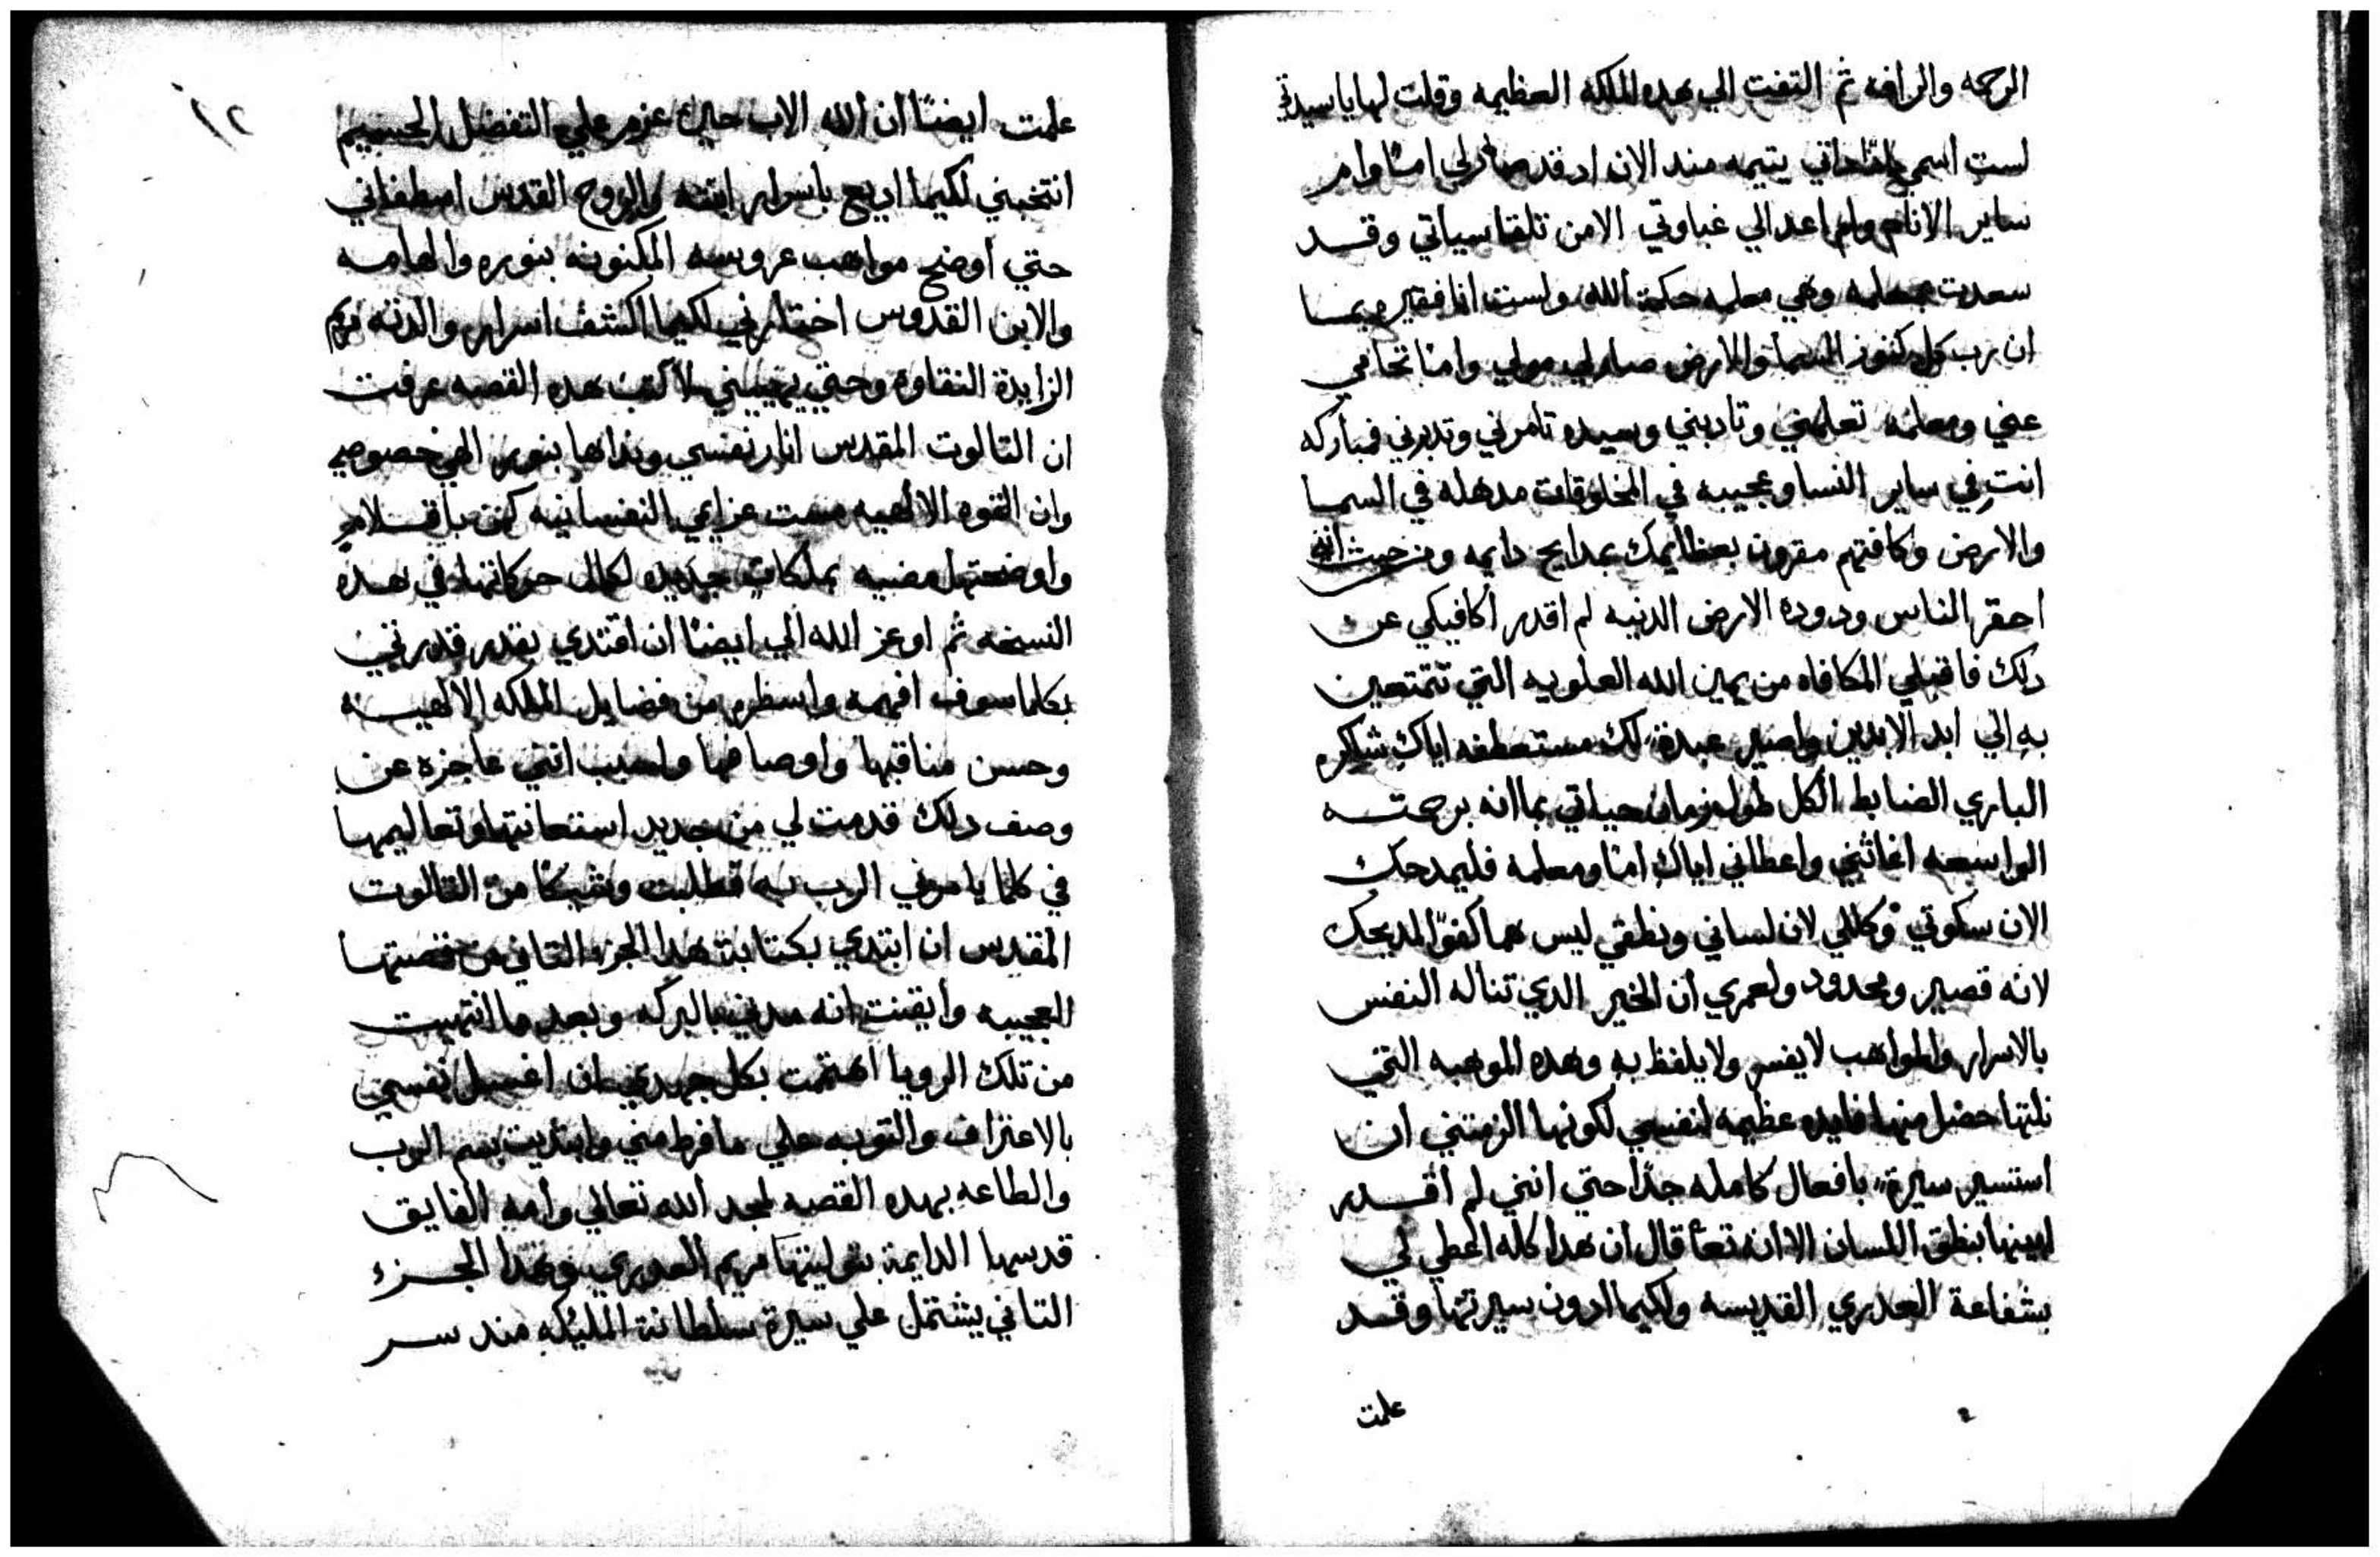 الرحمه والرافه ثم التفت الي هده الملكه العظيمه وقلت لها ياسيدتي
لست اسمي داتي يتيمه مند الان اد قد صار لي امنا وام
ساير الانام ولم اعد الي غباوتي الامن تلقا سياتي وقد
سعدت بمعلمه وهي معلمه حكمة الله ولست انا فقيره بما
ان رب كل كنوز السما والارض صار لي مولي وامنا تحامي
عني ومعلمه تعلمني وتادبني وسيده تامرني وتدبرني فمباركه
انتِ في ساير النسا وعجيبه في المخلوقات مدهله في السما
والارض وكافتهم مقرون بعظايمك بمدايح دايمه ومن حيث انني
احقر الناس ودودة الارض الدنيه لم اقدر أكافيكي عن
دلك فاقبلي المكافاه من يمين الله العلويه التي تتمتعين
به الي ابد الابدين واصير عبدة لك مستعطفه اياكِ شاكره
الباري الضابط الكل طول زمان حياتي بما انه برحمته
الواسعه اغاثني واعطاني اياكِ امنا ومعلمه فليمدحك
الان سكوتي وكللي لان لساني ونطقي ليس هما كفوًا لمديحك
لانه قصير ومحدود ولعمري ان الخير الدي تناله النفس
بالاسرار والمواهب لا يفسر ولا يلفظ به وهده الموهبه التي
نلتها حضل منها فايده عظيمه لنفسي لكونها الزمتني ان
استسير سيرة بافعال كامله جدًا حتي انني لم اقدر
ابينها بنطق اللسان الا انه تعا قال ان هدا كله اعطي لي
بشفاعة العدري القديسه ولكيما ادون سيرتها وقد
علمت
١٢
علمت ايضًا ان الله الاب حين عزم علي التفضيل الجسيم
انتخبني لكيما اديع باسرار ابنته والروح القدس اصطفاني
حتي اوضح مواهب عروسه المكنونه بنوره والهامه
والابن القدوس اختارني لكيما اكشف اسرار والدته مريم
الزايدة النقاوه وحتي يهيبني لاكتب هده القصه عرفت
ان التالوت المقدس انار نفسي ونداها بنور الهي خصوصي
وان القوه الالهيه مست عزايمي النفسانيه كمن باقلام
واوضحتها مضيه بملكات جديده لكمال حركاتها في هده
النسخه ثم اوعز الله الي ايضًا ان اقتدي بقدر قدرتي
بكلما سوف افهمه واسطره من فضايل الملكه الالهيه
وحسن مناقبها واوصافها ولسبب انني عاجزه عن
وصف دلك قدمت لي من جديد استعانتها وتعاليمها
في كلما يامرني الرب به فطلبت من التالوت
المقدس ان ابتدي بكتابة هدا الجزء التاني من قصتها
العجيبه وايقنت انه مدني بالبركه وبعد ما انتهيت
من تلك الرويا اهتمت بكل جهدي ان اغسل نفسي
بالاعتراف والتوبه علي ما فرط مني وابتديت بسم الرب
والطاعه بهده القصه لمجد الله تعالي وامه الفايق
قدسها الدايمة بتوليتها مريم العدري وهدا الجزء
التاني يشتمل علي سيرة سلطانة المليكه مند سر